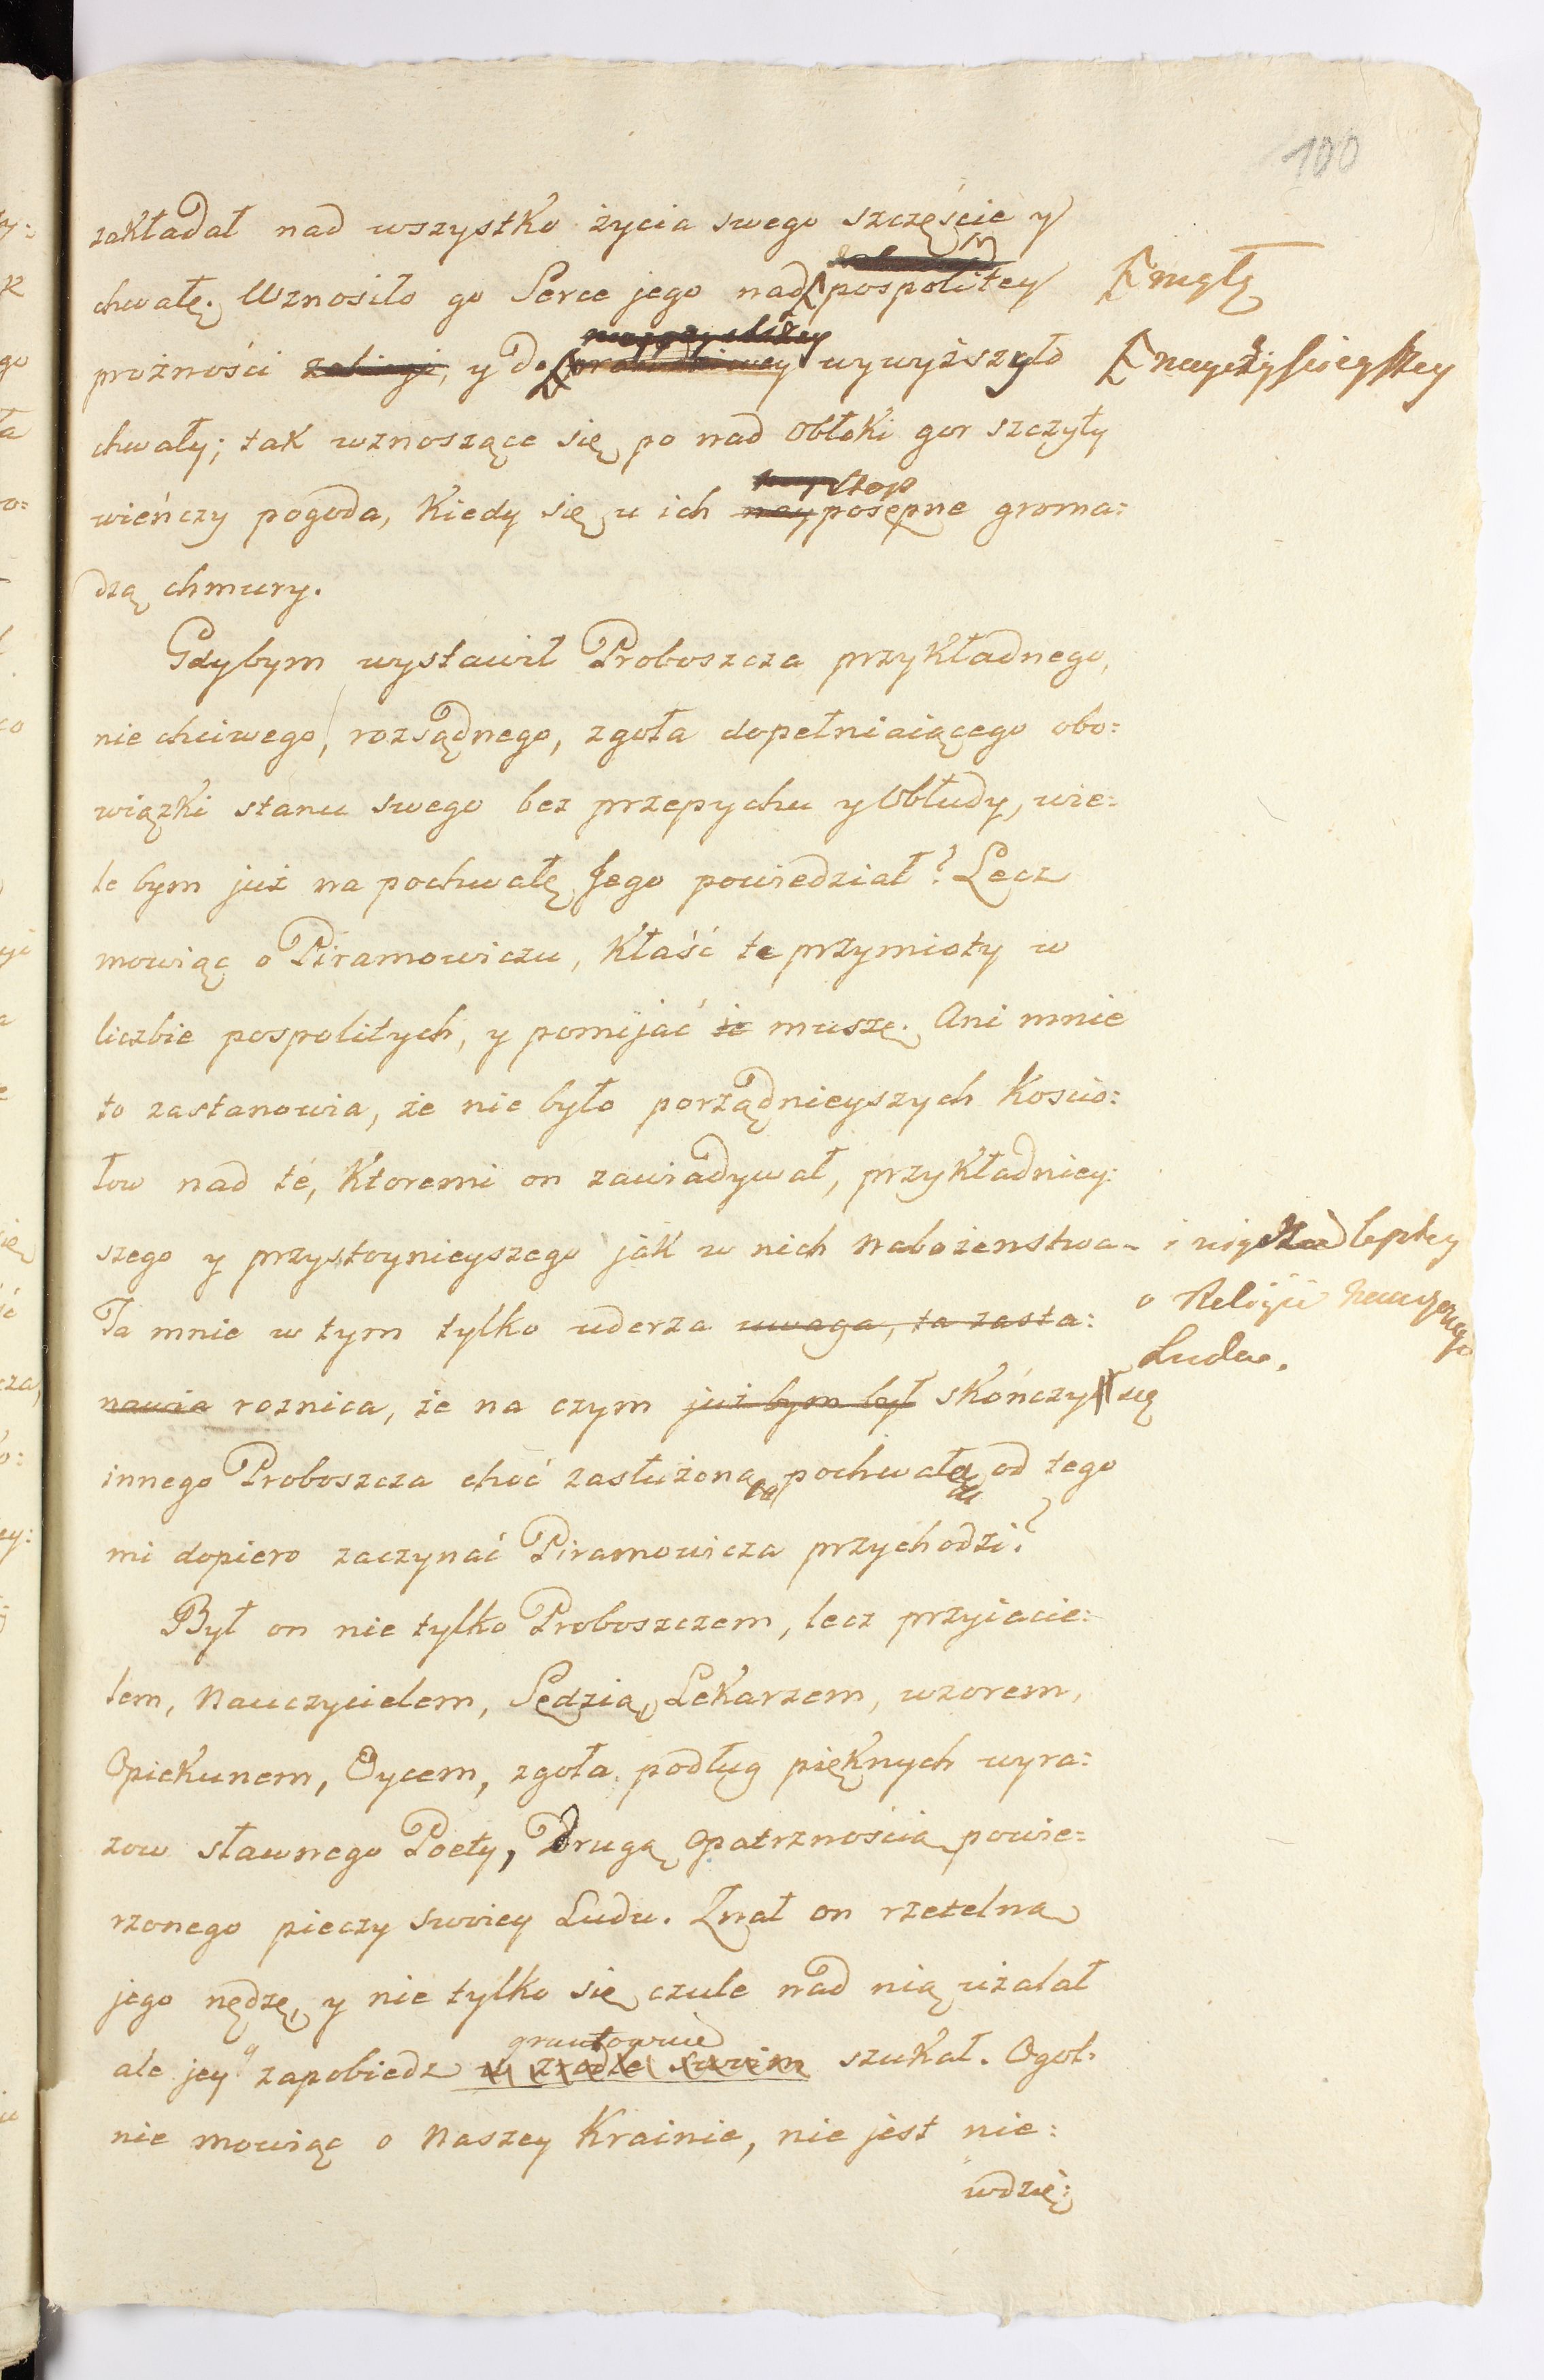 100
zakładał nad wszystko życia swego szczęście y
chwałę. Wznosiło go Serce jego nad pospolitey
mgłę
prożności zaliczyć, y do prawdziwey wywyższyło
nayczyścieyszey
chwały; tak wznoszące się po nad Obłoki gor szczyty
stop
wieńczy pogoda, Kiedy się u ich nay posępne groma:
dzą chmury.
Gdybym wystawił Proboszcza przykładnego,
nie chciwego, rozsądnego, zgoła dopełniaiącego obo:
wiązki stanu swego bez przepychu y Obłudy, wie:
le bym już na pochwałę Jego powiedział? Lecz
mowiąc o Piramowiczu, Kłaść te przymioty w
liczbie pospolitych, y pomijać je muszę. Ani mnie
to zastanowia, że nie było porządnieyszych Kościo:
łow nad té, Ktoremi on zawiadywał, przykładniey:
szego y przystoynieyszego jak w nich Nabożenstwa
i nigdzie lepiey
o Religii nauczonego
Ludu.
Ta mnie w tym tylko uderza uwaga, ta zasta:
nawia roznica, że na czym już bym był skończył się
innego Proboszcza choć zasłużona pochwała od tego
mi dopiero zaczynać Piramowicza przychodzi?
Był on nie tylko Proboszczem, lecz przyiacie:
lem, Nauczycielem, Sędzią, Lekarzem, wzorem,
Opiekunem, Oycem, zgoła podług pięknych wyra:
zow sławnego Poety, Drugą Opatrznością powie:
rzonego pieczy swoiey Ludu. Znał on rzetelna
jego nędzę, y nie tylko się czule nad nią użalał
gruntownie
ale jey zapobiedz w zrodle swoim szukał. Ogol:
nie mowiąc o Naszey Krainie, nie jest nie:
wdzię: